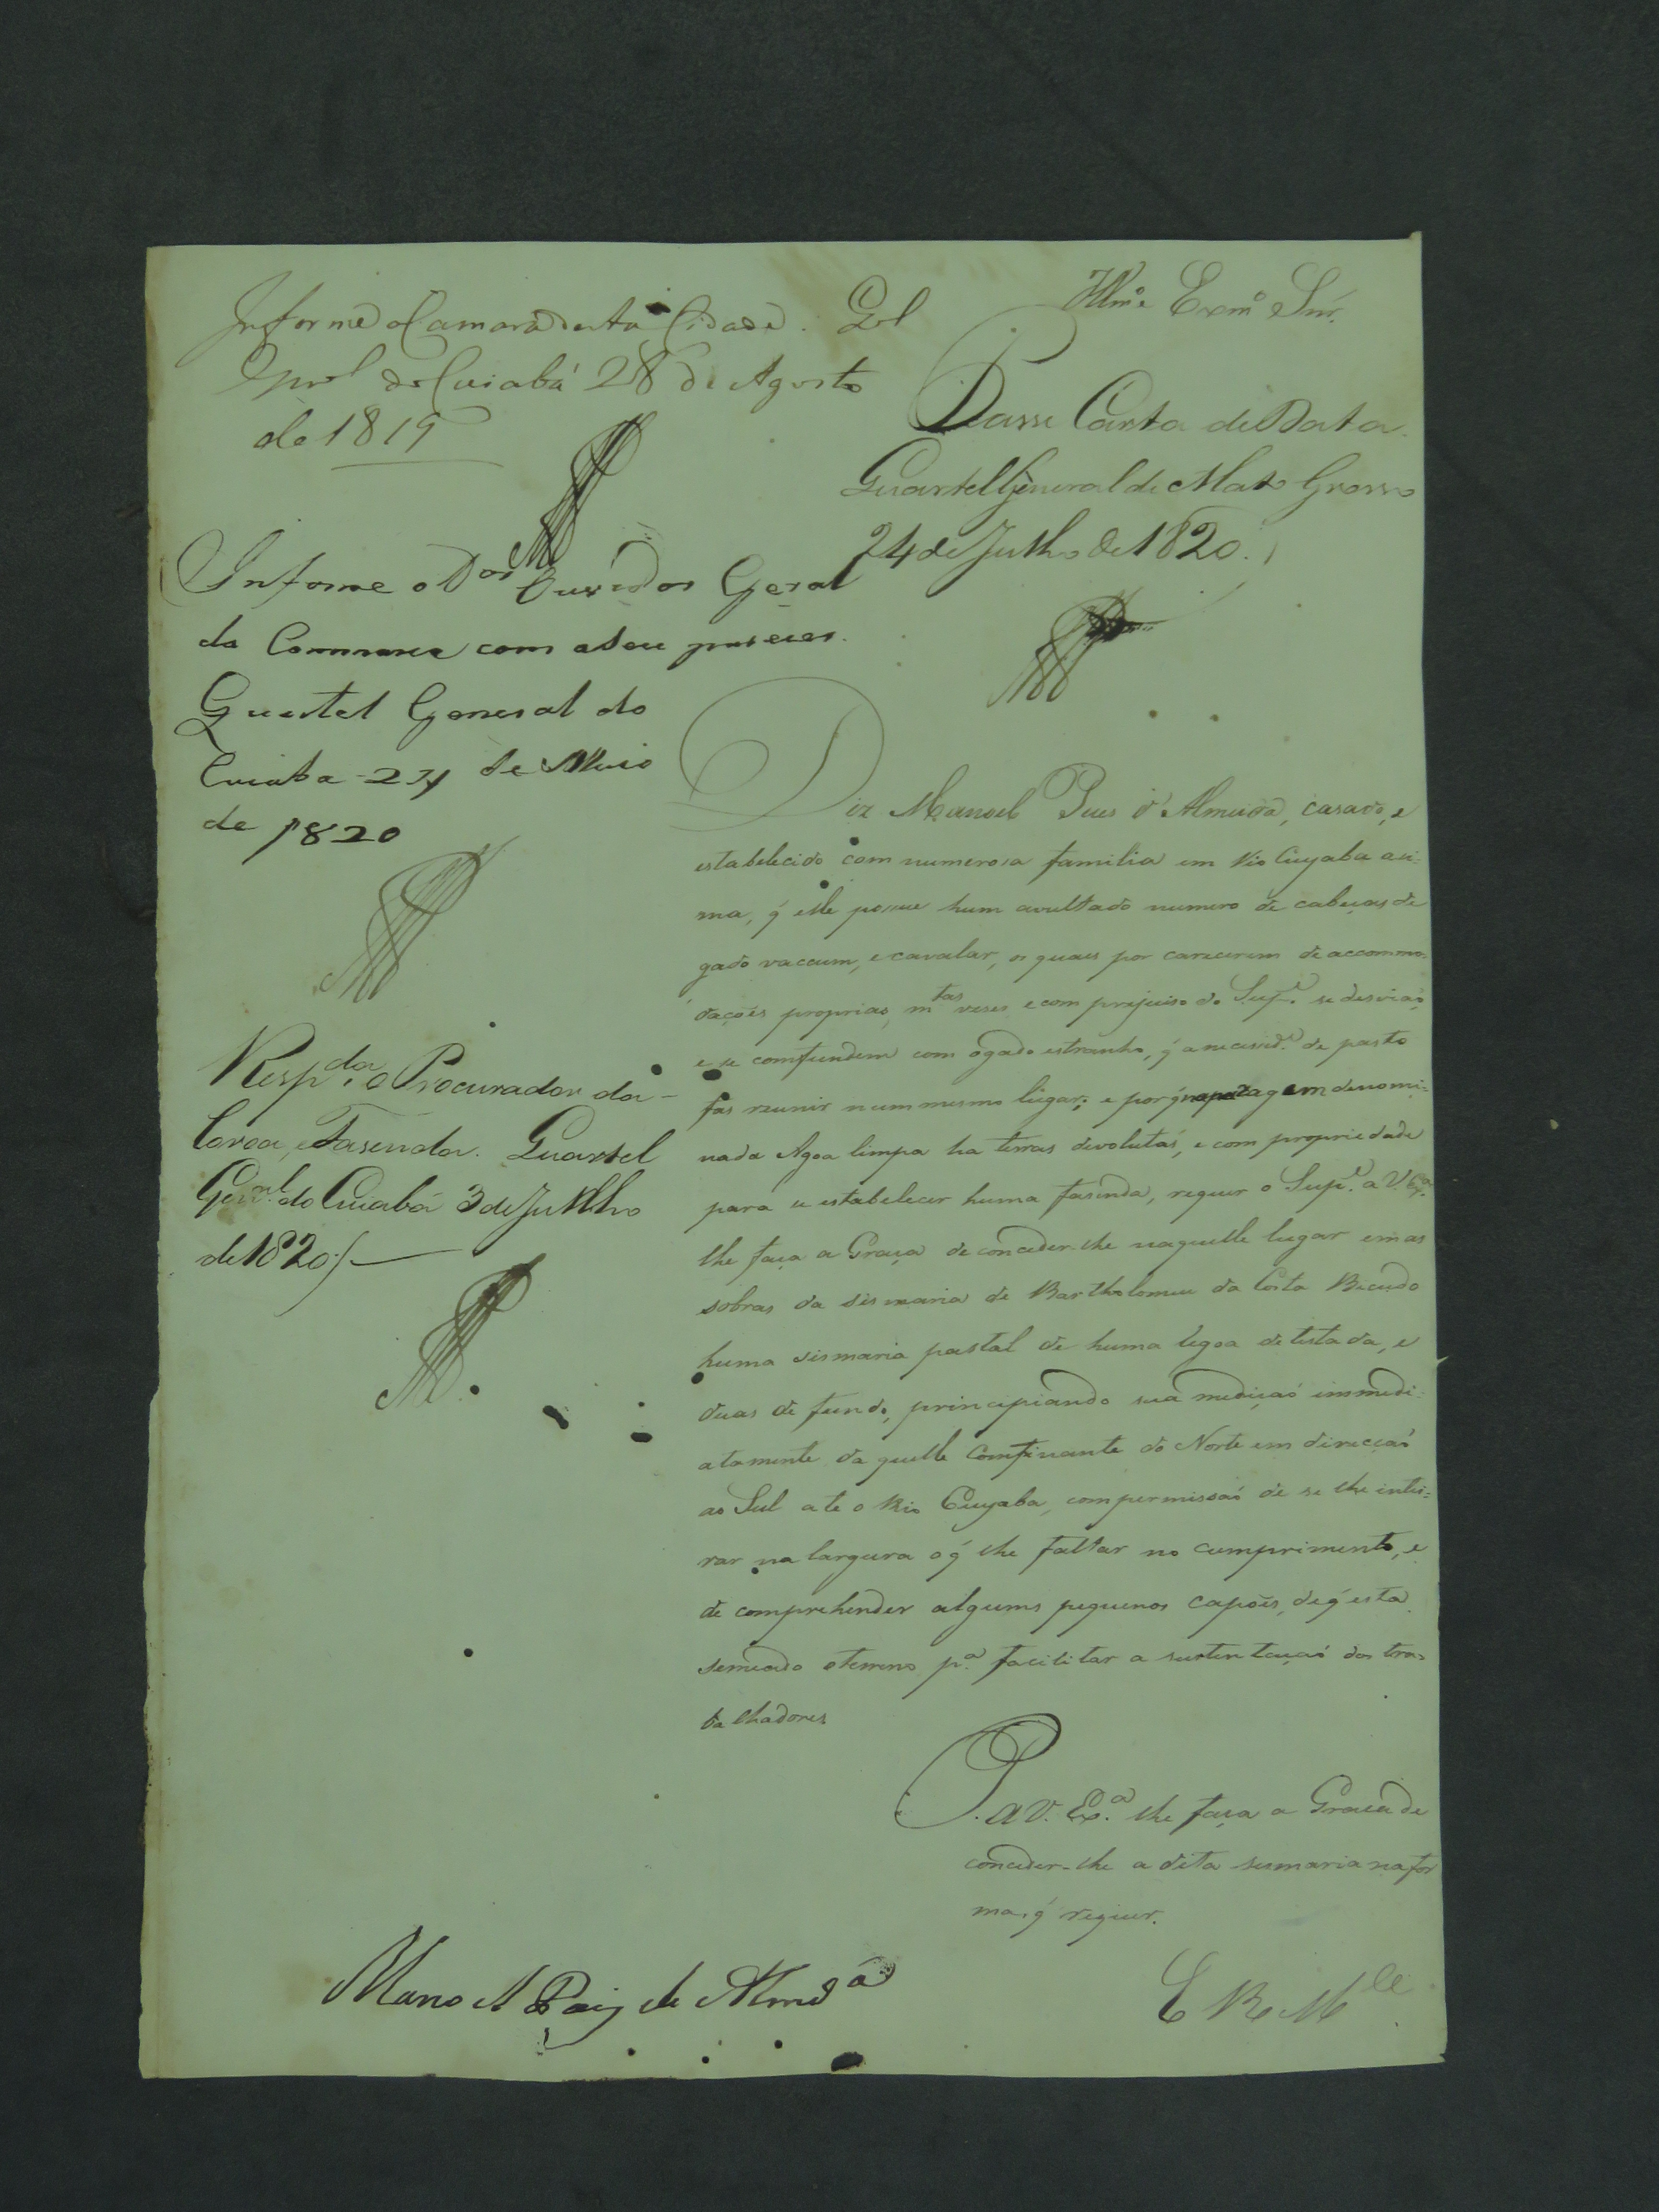 Informe a Camara desta Cidade. Qel
Gnrl do Cuiabá 28 de Agosto
de 1819
Illmo e Exmo Snr.
Passe Carta de Data.
Quartel General de Mato Grosso
24 de Julho de 1820.
Informe o Dor Ouvidor Geral
da Comarca com o seu parecer.
Quartel General do
Cuiaba 27 de Maio
de 1820
Respda. o Procurador da
Coroa, e Fasenda. Quartel
Genal. do Cuiabá 3 de Julho
de 1820
Diz Manoel Paes d'Almeida, casado, e
estabelecido com numerosa familia em Rio Cuyaba aci-
ma, q̃ elle possue hum avultado numero de cabeças de
gado vaccum, e cavalar, os quaes por carecerem de accommo-
daçoẽs proprias, mtas vezes, e com prejuiso do Supe. se desviaõ,
e se comfundem com o gado estranho, q̃ a necesside. de pasto
fas reunir num mesmo lugar; e por q̃ na paragem denomi-
nada Agoa limpa ha terras devolutas, e com propriedade
para se estabelecer huma fasenda, requer o Supe. a V. Exa.
lhe faça a Graça de conceder-lhe naquelle lugar em as
sobras da sismaria de Bartholomeu da Costa Bicudo
huma sismaria pastal de huma legoa de testada, e
duas de fundo, principiando sua mediçaõ immedi-
atamente daquelle Confinante do Norte em direcçaõ
ao Sul ate o Rio Cuyaba, com permissaõ de se lhe intei-
rar na largura o q̃ lhe faltar no cumprimento, e
de comprehender algums pequenos capoẽs, de q̃ esta
semeado o terreno pa. facilitar a sustentaçaõ dos tra-
balhadores
P. a V. Exa. lhe faça a Graça de
conceder-lhe a dita sesmaria na for
ma, q̃ requer.
Manoel Paiz de Almda
E R Mce